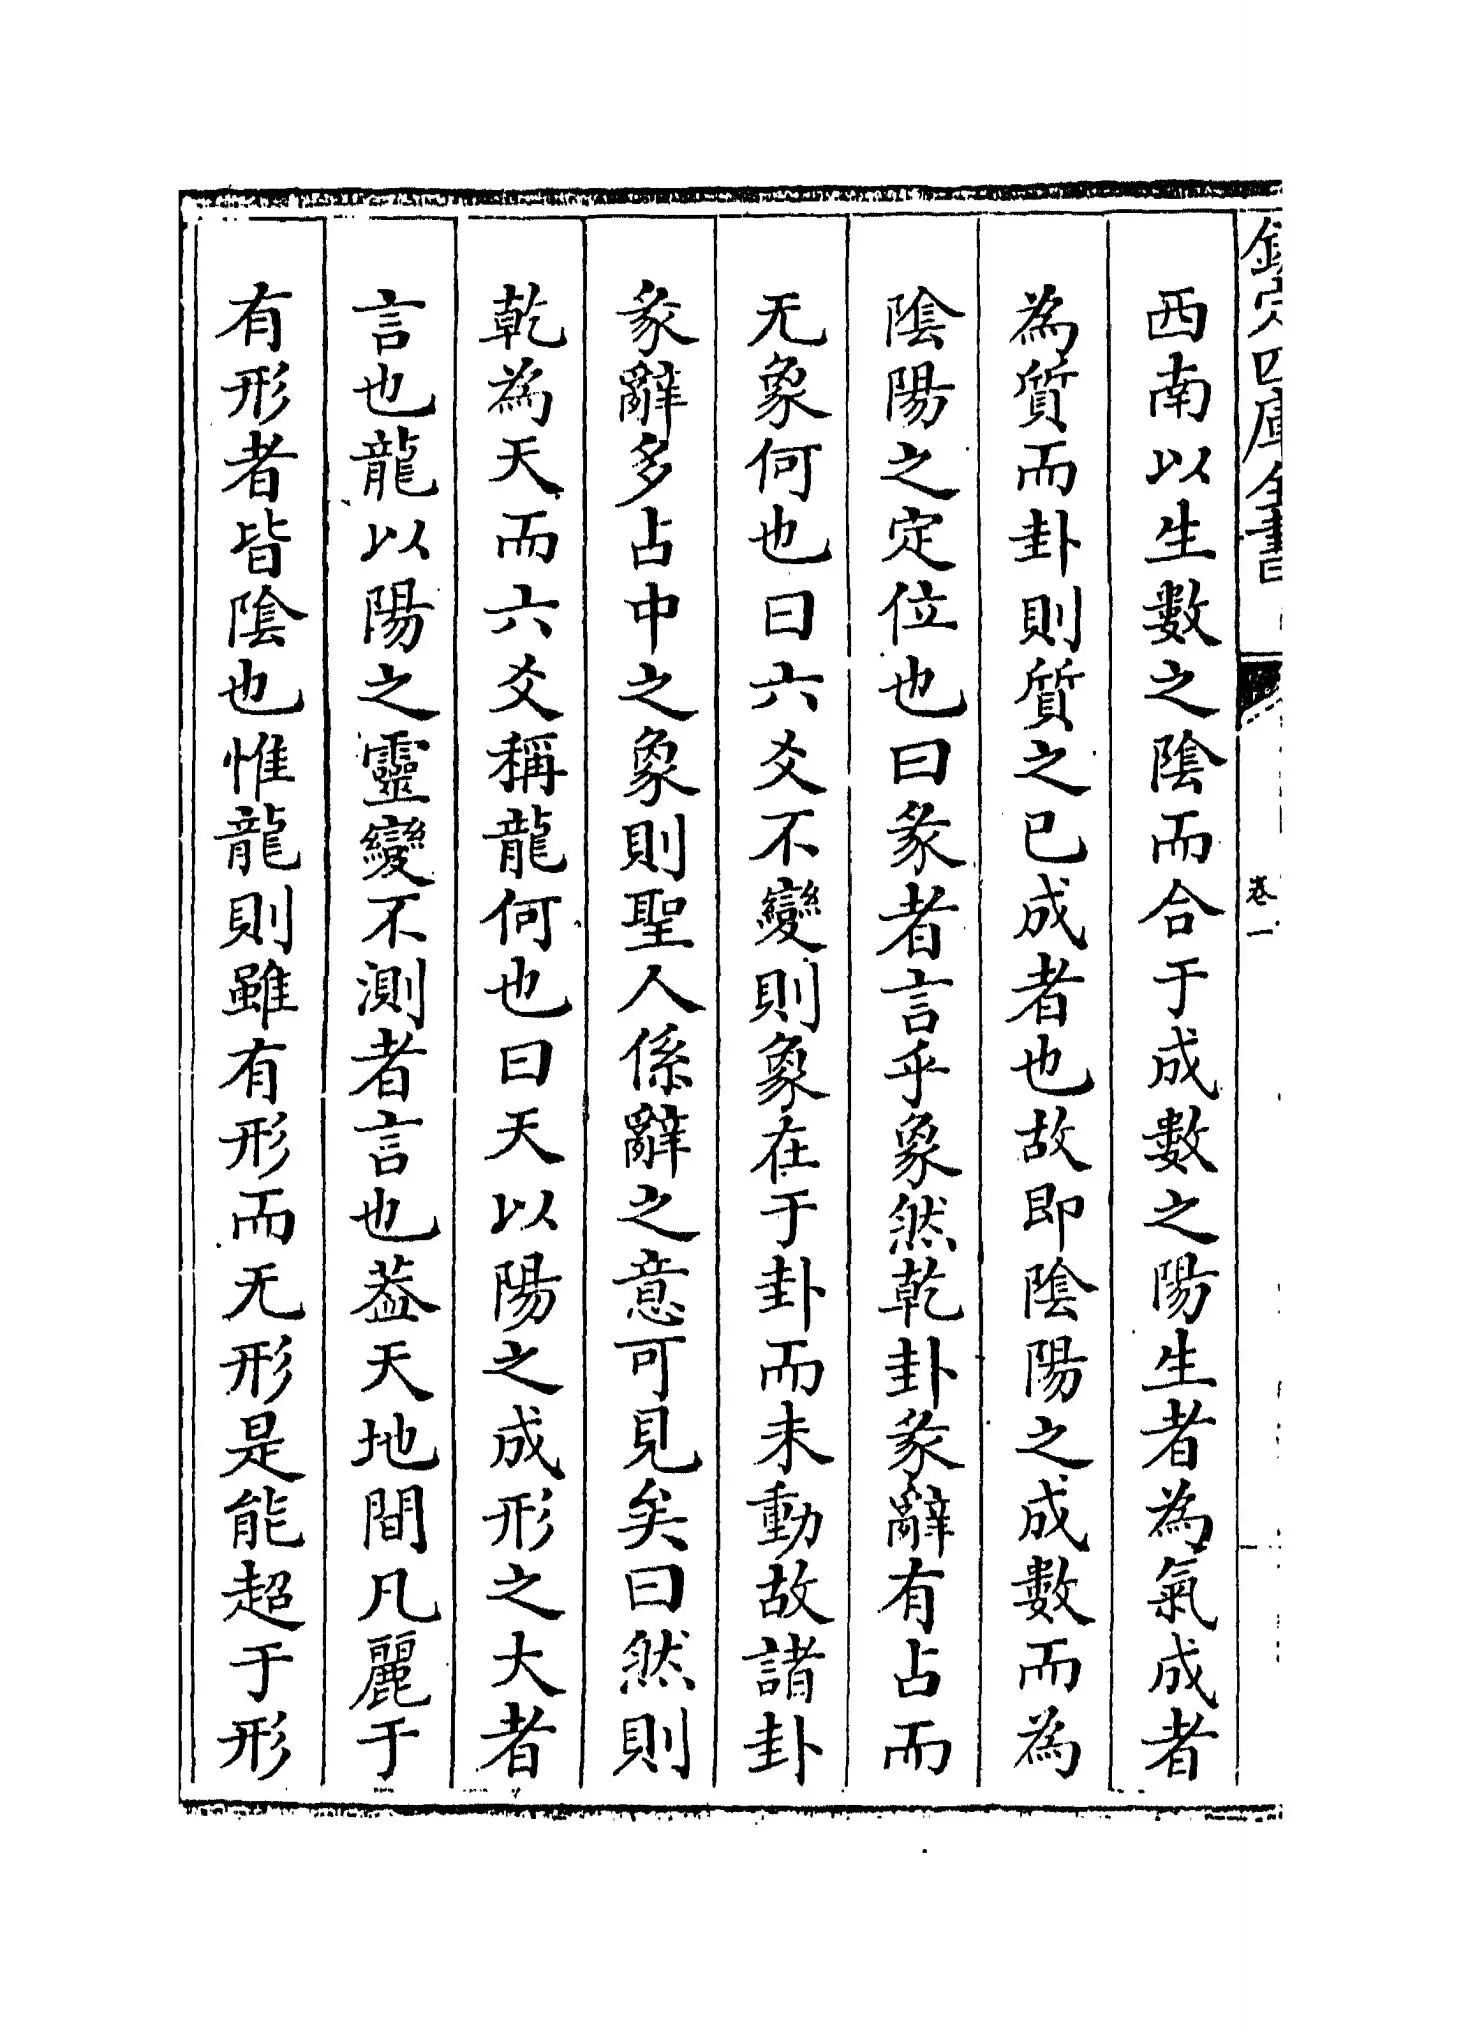 欽定四庫全書
卷一
西南以生數之陰而合于成數之陽生者為氣成者
為質而卦則質之已成者也故即陰陽之成數而為
陰陽之定位也曰彖者言乎象然乾卦彖辭有占而
无象何也曰六爻不變則象在于卦而未動故諸卦
彖辭多占中之象則聖人係辭之意可見矣曰然則
乾為天而六爻稱龍何也曰天以陽之成形之大者
言也龍以陽之靈變不測者言也葢天地間凡麗于
有形者皆陰也惟龍則雖有形而无形是能超于形